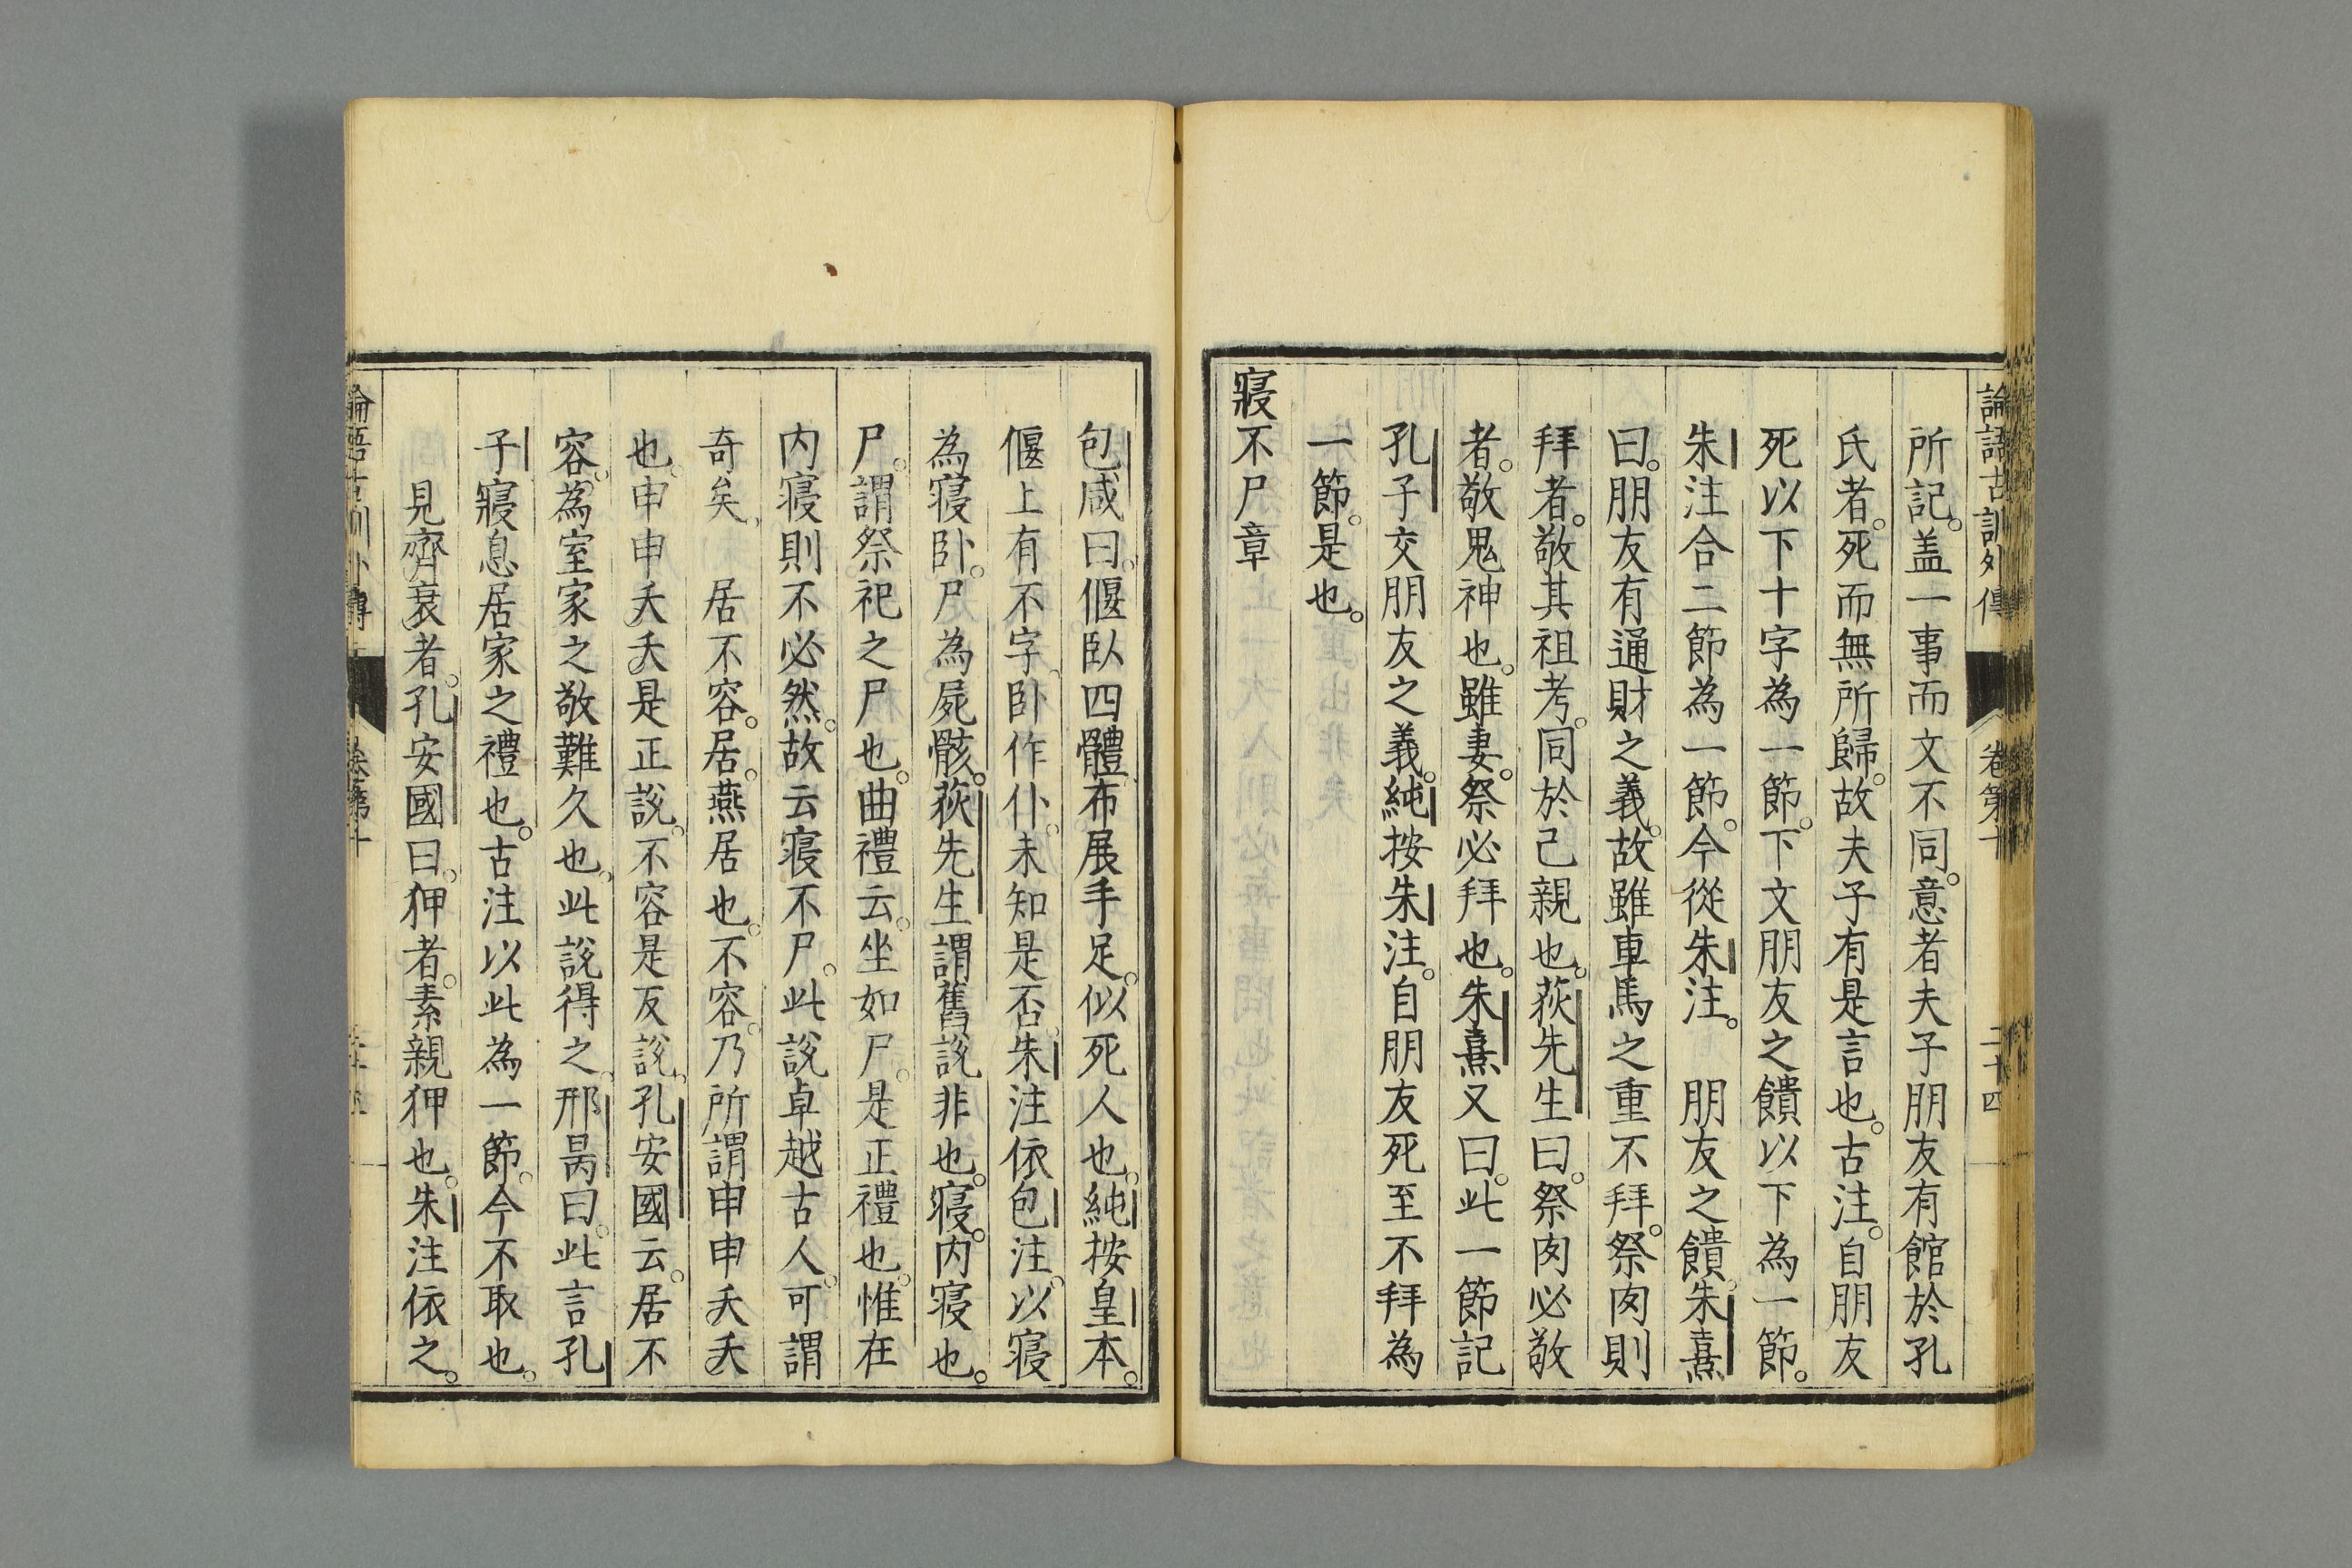 論語古訓外傳 卷第十 二十四
所記。盖一事而文不同。意者夫子朋友有館於孔
氏者。死而無所歸。故夫子有是言也。古注。自朋友
死以下十字為一節。下文朋友之饋以下為一節。
朱注合二節為一節。今從朱注。 朋友之饋。朱熹
曰。朋友有通財之義。故雖車馬之重不拜。祭肉則
拜者。敬其祖考。同於己親也。荻先生曰。祭肉必敬
者。敬鬼神也。雖妻。祭必拜也。朱熹又曰。此一節記
孔子交朋友之義。純按朱注。自朋友死至不拜為
一節。是也。
寢不尸章
包咸曰。偃臥四體布展手足。似死人也。純按皇本。
偃上有不字。卧作仆。未知是否。朱注依包注。以寢
為寢卧。尸為屍骸。荻先生謂舊説非也。寢。内寢也。
尸。謂祭祀之尸也。曲禮云。坐如尸。是正禮也。惟在
内寢則不必然。故云寢不尸。此説卓越古人。可謂
奇矣。 居不容。居。燕居也。不容。乃所謂申申夭夭
也。申申夭夭是正説。不容是反説。孔安國云。居不
容。為室家之敬難久也。此説得之。邢昺曰。此言孔
子寢息居家之禮也。古注以此為一節。今不取也。
見齊衰者。孔安國曰。狎者。素親狎也。朱注依之。
論語古訓外傳 卷第十